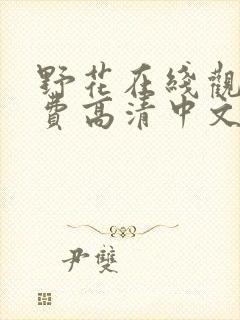 野花在綫觀
費高清中文
尹雙